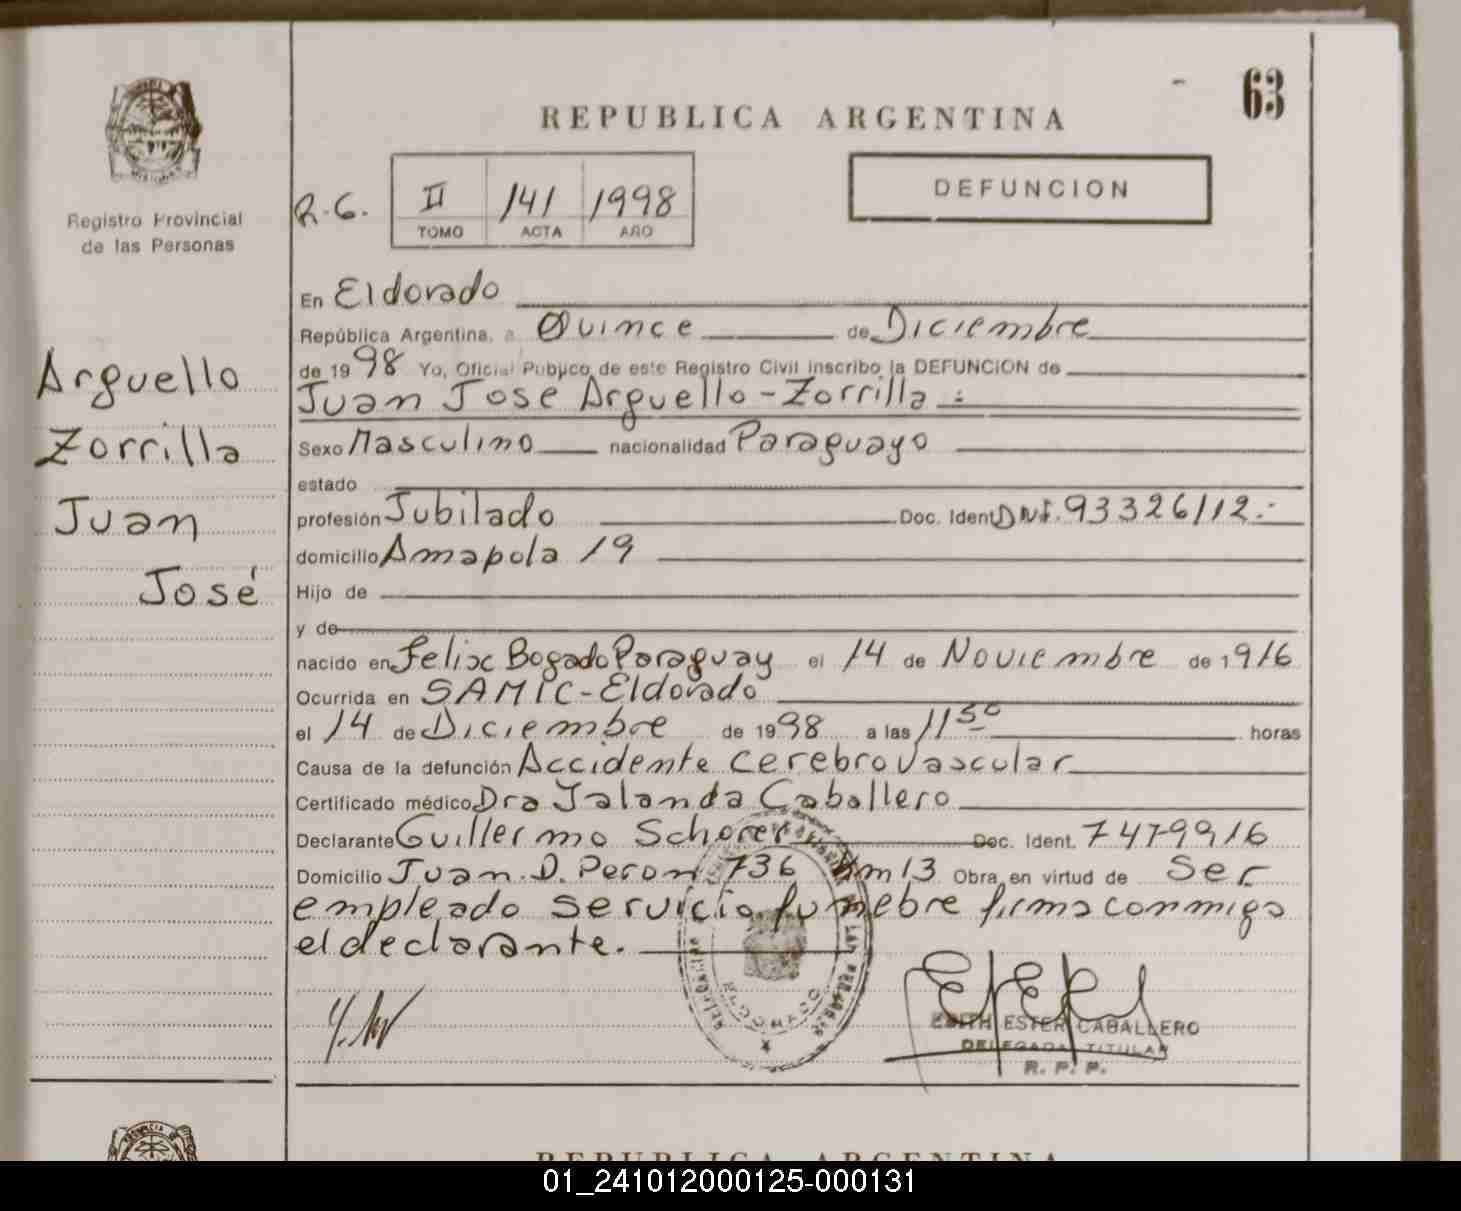 63
REPUBLICA ARGENTINA
DEFUNCION
Registro Provincial
de las Personas
R.G. II 141 1998
TOMO ACTA AÑO
En Eldorado
República Argentina, a Quince de Diciembre
de 1998 Yo, Oficial Publico de este Registro Civil inscribo la DEFUNCION de
Juan Jose Arguello-Zorrilla
Arguello
Zorrilla
Juan
José
Sexo Masculino nacionalidad Paraguayo
estado
profesión Jubilado Doc. Ident. DNI. 93326112.-
domicilio Amapola 19
Hijo de
y de
nacido en Felix Bogado Paraguay el 14 de Noviembre de 1916
Ocurrida en SAMIC-Eldorado
el 14 de Diciembre de 1998 a las 11 50 horas
Causa de la defunción Accidente cerebrovascular
Certificado médico Dra Jalanda Caballero
Declarante Guillermo Schorer Doc. Ident. 7479916
Domicilio Juan. D. Peron 736 Km 13 Obra en virtud de Ser
empleado servicio funebre firma conmigo
el declarante.
ELDORADO
EDITH ESTER CABALLERO
DELEGADA TITULAR
R. P. P.
REPUBLICA ARGENTINA
01_241012000125-000131